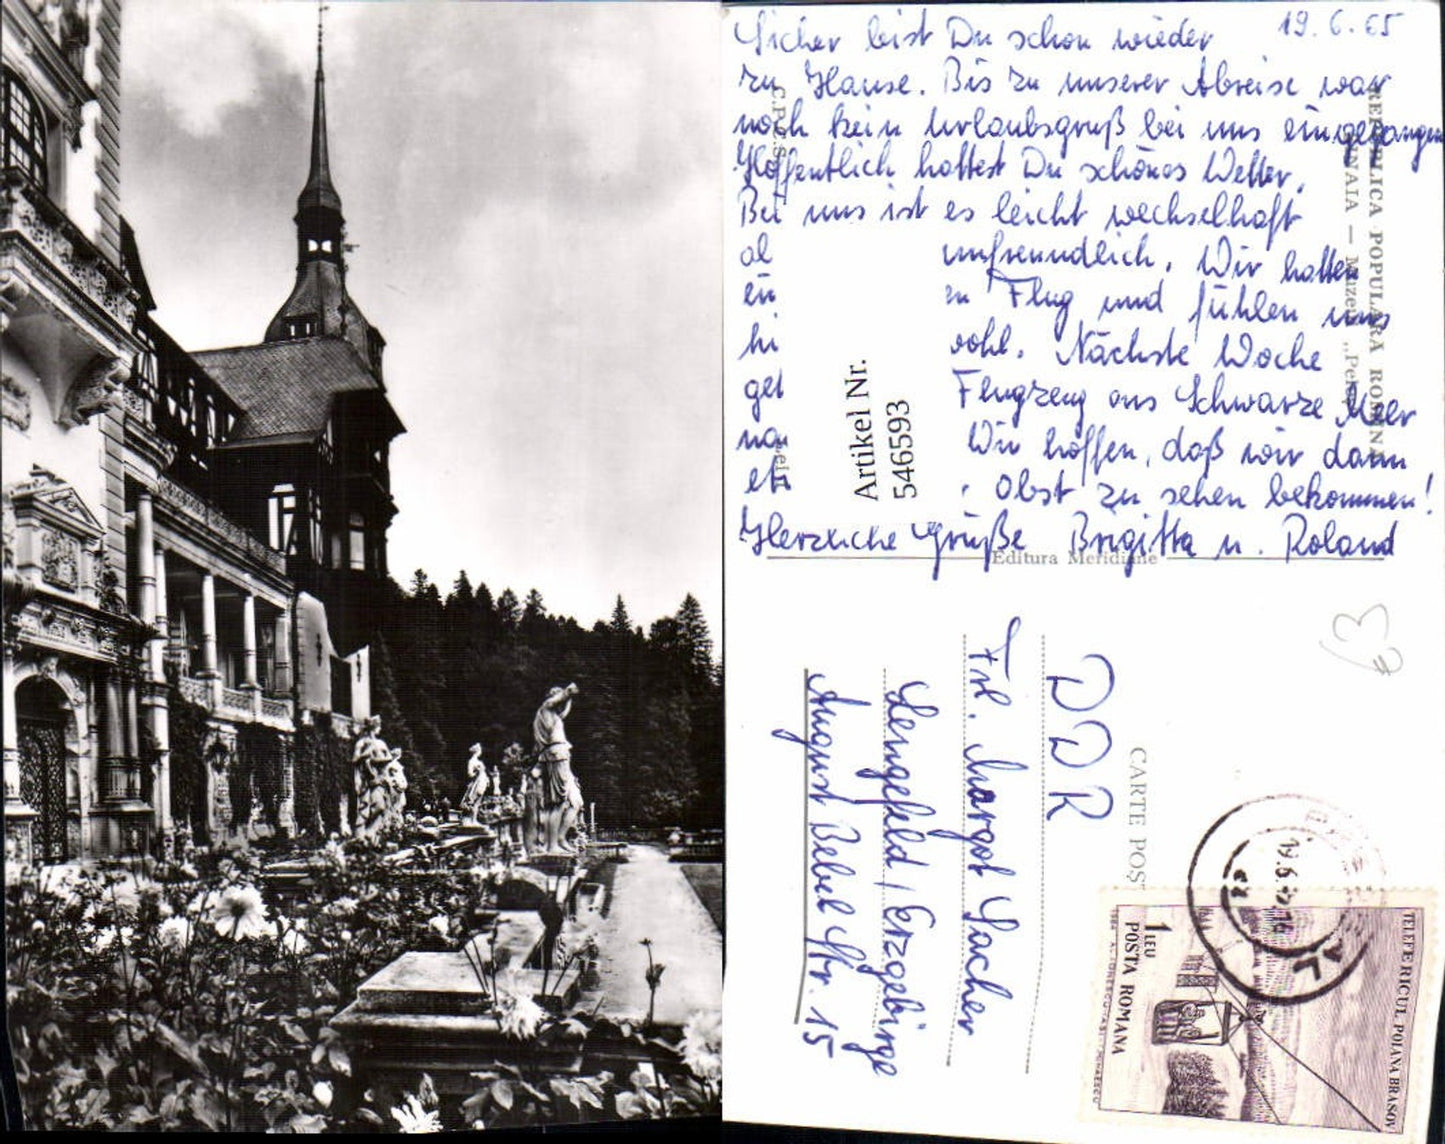 19.6.65
Sicher bist Du schon wieder
zu Hause. Bis zu unserer Abreise war
noch kein Urlaubsgruß bei uns eingegangen
Hoffentlich hattest Du schönes Wetter.
Bei uns ist es leicht wechselhaft
unfreundlich. Wir hatten
en Flug und fühlen uns
wohl. Nächste Woche
Flugzeug ans Schwarze Meer
Wir hoffen, daß wir dann
Obst zu sehen bekommen!
Herzliche Grüße Brigitta u. Roland
Artikel Nr.
546593
REPUBLICA POPULARĂ ROMÎNĂ
SINAIA — Muzeul „Peleș
Editura Meridiane
CARTE POȘ
DDR
Frl. Margot Sacher
Lengefeld / Erzgebirge
August Bebel Str. 15
19.6.
TELEFERICUL POIANA BRASOV
1 LEU
POSTA ROMANA